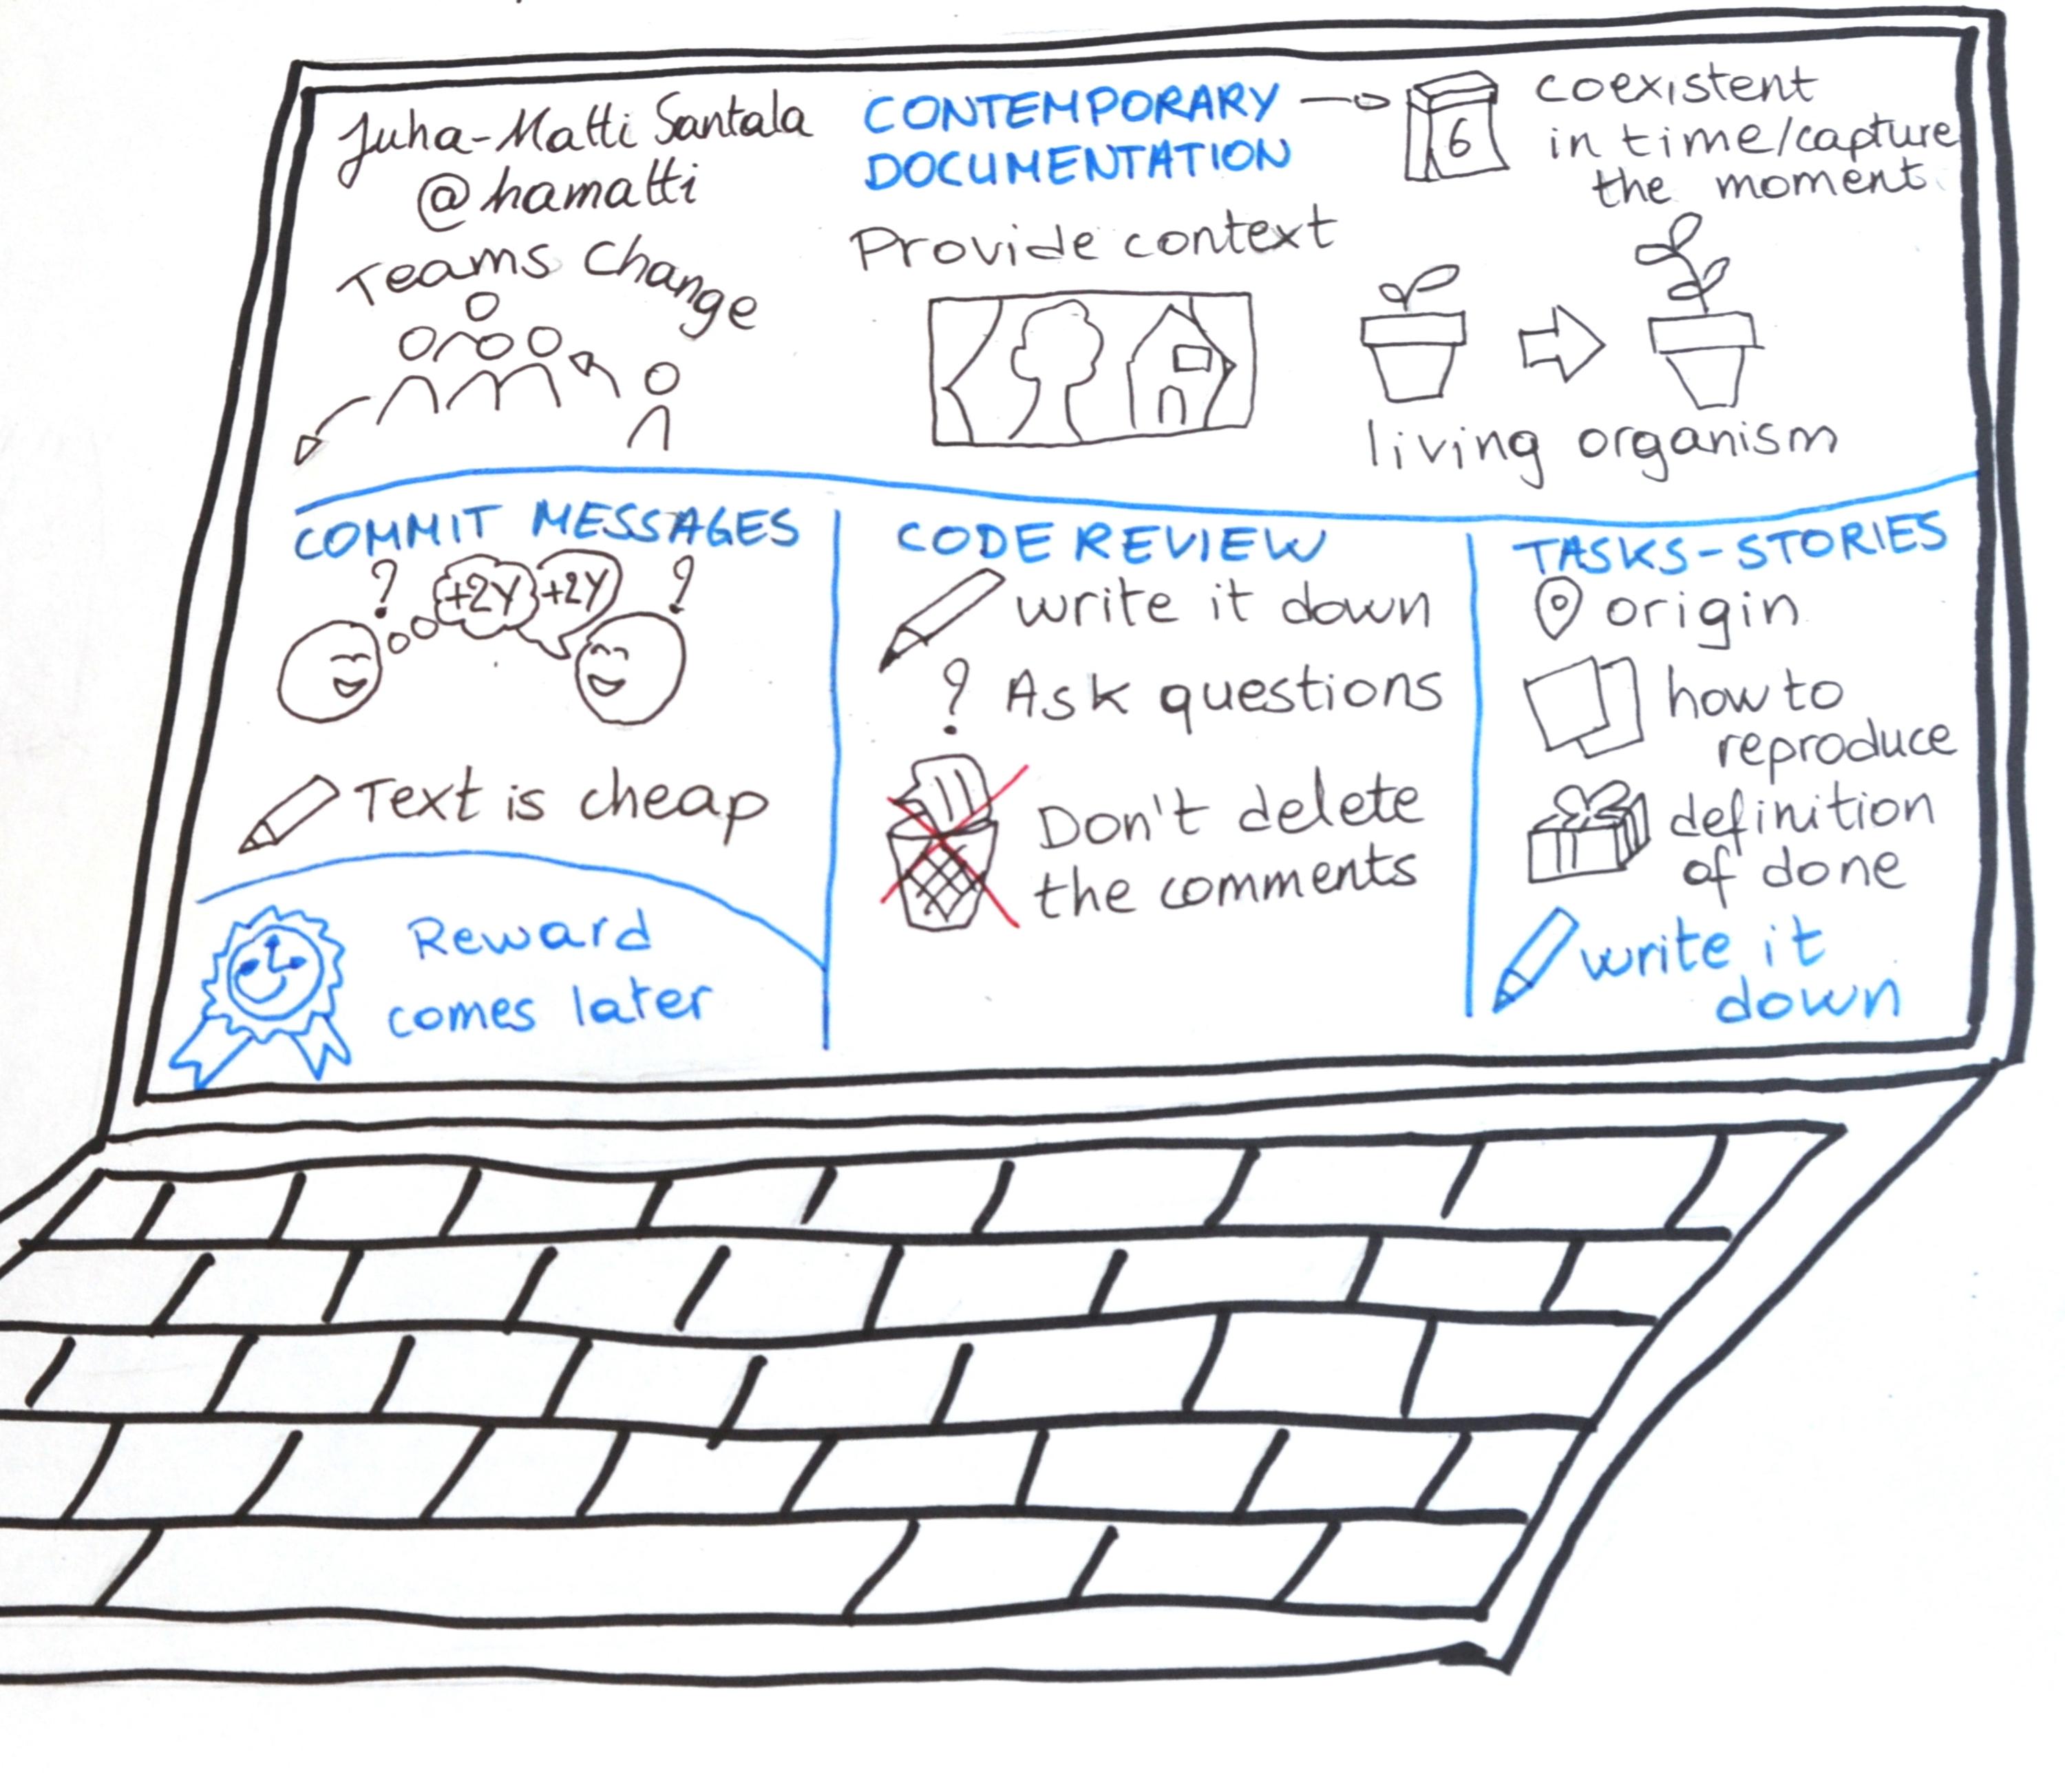 Juha-Matti Santala
@hamatti
CONTEMPORARY
DOCUMENTATION
6
coexistent
in time/capture
the moment
Teams change
Provide context
living organism
COMMIT MESSAGES
? +2Y +2Y ?
Text is cheap
Reward
comes later
CODE REVIEW
write it down
? Ask questions
Don't delete
the comments
TASKS-STORIES
origin
how to
reproduce
definition
of done
write it
down